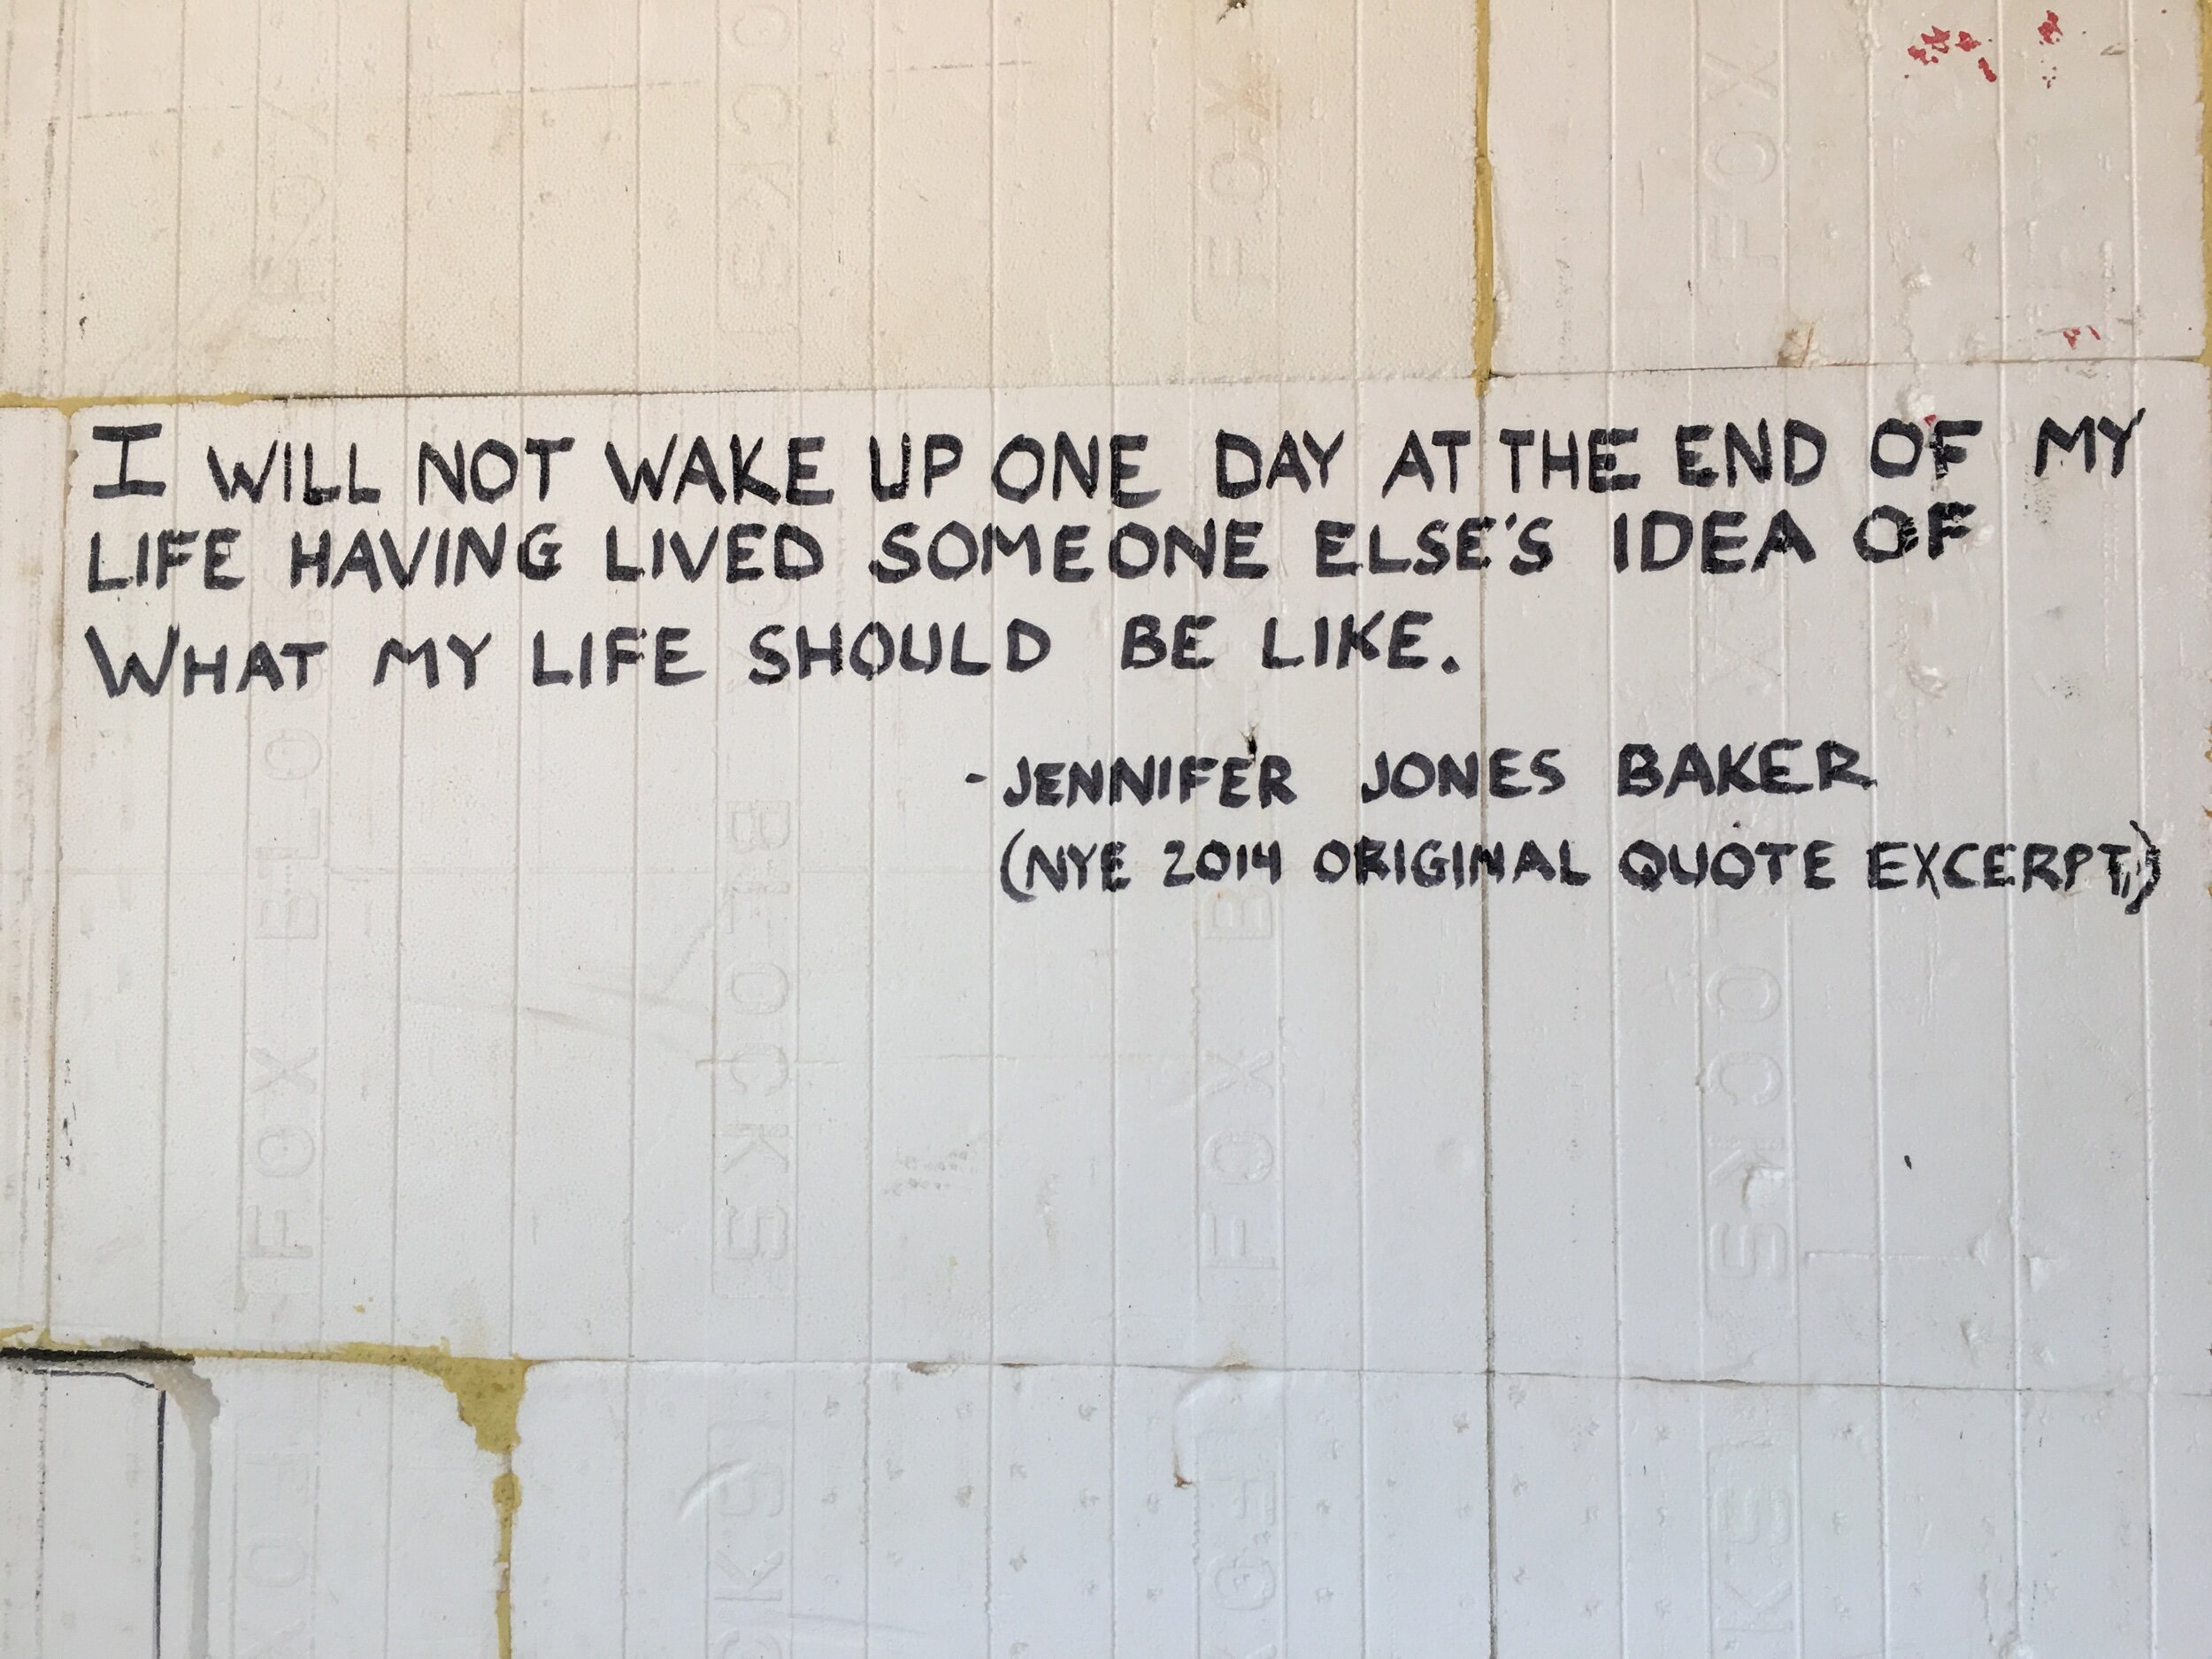 I WILL NOT WAKE UP ONE DAY AT THE END OF MY
LIFE HAVING LIVED SOMEONE ELSE'S IDEA OF
WHAT MY LIFE SHOULD BE LIKE.
-JENNIFER JONES BAKER
(NYE 2014 ORIGINAL QUOTE EXCERPT)
FOX
BLOCKS
FOX
FOX
FOX BLO
BLOCKS
FOX B
OCKS
FOX
CKS
FOX
KS